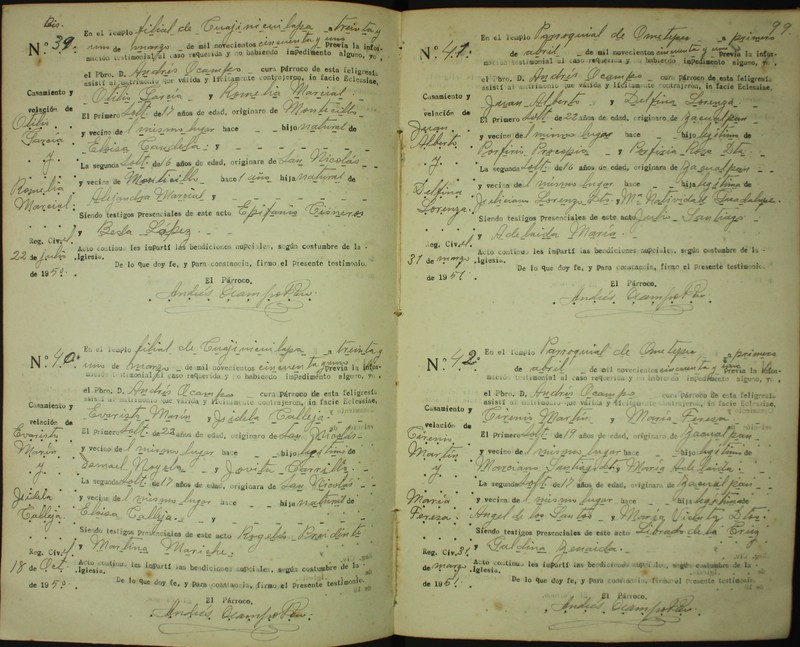 Nº 39.
En el Templo filial de Cuajinicuilapa a treinta y
uno de marzo de mil novecientos cincuenta y uno Previa la infor-
mación testimonial al caso requerida y no habiendo impedimento alguno, yo,
el Pbro. D. Andrés Ocampo cura Párroco de esta feligresía
asistí al matrimonio que válida y lícitamente contrajeron, in facie Eclesiae,
Casamiento y
velación de
Otilio García y Romelia Marcial.
El Primero Solt. de 17 años de edad, originaro de Montecillo
y vecino del mismo lugar hace - - hijo natural de
Eloisa Candela: y
La segunda Solt. de 16 años de edad, originara de San Nicolás
y vecina de Montecillo hace 1 año hija natural de
Alejandra Marcial y
Siendo testigos Presenciales de este acto Epifanio Cisneros
y Berta López.
Otilio
García
y
Romelia
Marcial.
Reg. Civil.
22 de julio
de 1950.
Acto continuo les impartí las bendiciones nupciales, según costumbre de la
Iglesia.
De lo que doy fe, y para constancia, firmo el Presente testimonio.
El Párroco,
Andrés Ocampo Pbro.
Nº 40.
En el Templo filial de Cuajinicuilapa a treinta y
uno de marzo de mil novecientos cincuenta y uno Previa la infor-
mación testimonial al caso requerida y no habiendo impedimento alguno, yo,
el Pbro. D. Andrés Ocampo cura Párroco de esta feligresía
asistí al matrimonio que válida y lícitamente contrajeron, in facie Eclesiae,
Casamiento y
velación de
Evaristo Marín y Isidela Calleja.
El Primero Solt. de 22 años de edad, originaro de San Nicolás
y vecino del mismo lugar hace - - hijo legítimo de
Noyola y Jovita
La segunda Solt. de 17 años de edad, originara de San Nicolás
y vecina del mismo lugar hace - - hija natural de
Eloisa Calleja. y
Siendo testigos Presenciales de este acto Rogelio
y Martina
Evaristo
Marín
y
Isidela
Calleja.
Reg. Civil
18 de Oct.
de 1950.
Acto continuo les impartí las bendiciones nupciales, según costumbre de la
Iglesia.
De lo que doy fe, y para constancia, firmo el Presente testimonio.
El Párroco,
Andrés Ocampo Pbro.
99
Nº 41.
En el Templo Parroquial de Ometepec a primero
de abril de mil novecientos cincuenta y uno Previa la infor-
mación testimonial al caso requerida y no habiendo impedimento alguno, yo,
el Pbro. D. Andrés Ocampo cura Párroco de esta feligresía
asistí al matrimonio que válida y lícitamente contrajeron, in facie Eclesiae,
Casamiento y
velación de
Juan Alberto y Delfina Lorenza.
El Primero Solt. de 22 años de edad, originaro de Zacualpan
y vecino del mismo lugar hace - - hijo legítimo de
Porfirio y Porfiria Rosa Dtos.
La segunda Solt. de 16 años de edad, originara de Zacualpan
y vecina del mismo lugar hace - - hija legítima de
Lorenzo y Mª Natividad Guadalupe.
Siendo testigos Presenciales de este acto Julio Santiago
y Adelaida María.
Juan
Alberto
y
Delfina
Lorenza.
Reg. Civil.
31 de marzo
de 1951.
Acto continuo les impartí las bendiciones nupciales, según costumbre de la
Iglesia.
De lo que doy fe, y para constancia, firmo el Presente testimonio.
El Párroco,
Andrés Ocampo Pbro.
Nº 42.
En el Templo Parroquial de Ometepec a primero
de abril de mil novecientos cincuenta y uno Previa la infor-
mación testimonial al caso requerida y no habiendo impedimento alguno, yo,
el Pbro. D. Andrés Ocampo cura Párroco de esta feligresía
asistí al matrimonio que válida y lícitamente contrajeron, in facie Eclesiae,
Casamiento y
velación de
Cirenio Martín y María Tereza
El Primero Solt. de 19 años de edad, originaro de Zacualpan
y vecino del mismo lugar hace - - hijo legítimo de
Marciano Santiago y María Adelaida.
La segunda Solt. de 17 años de edad, originara de Zacualpan
y vecina del mismo lugar hace - - hija legítima de
Angel de los Santos y María Victoria
Siendo testigos Presenciales de este acto Librado de la Cruz
y Galdina Zenaida.
Cirenio
Martín
y
María
Tereza.
Reg. Civ. 31
de marzo
de 1951.
Acto continuo les impartí las bendiciones nupciales, según costumbre de la
Iglesia.
De lo que doy fe, y para constancia, firmo el Presente testimonio.
El Párroco,
Andrés Ocampo Pbro.